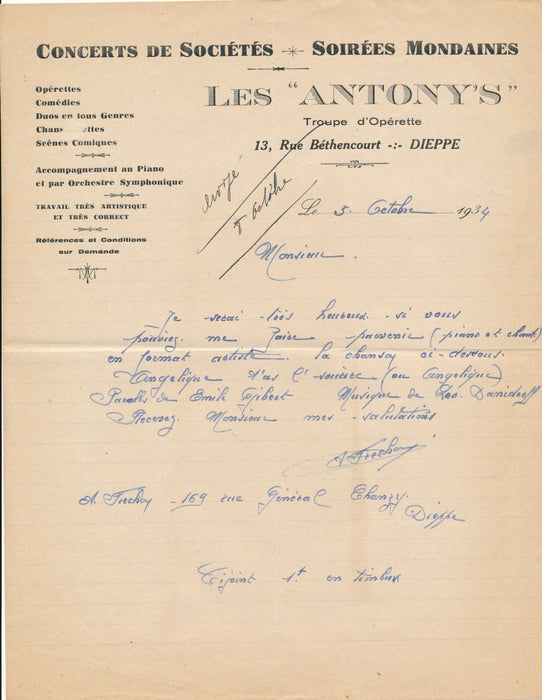 CONCERTS DE SOCIÉTÉS -*- SOIRÉES MONDAINES
Opérettes
Comédies
Duos en tous Genres
Chans ettes
Scènes Comiques
Accompagnement au Piano
et par Orchestre Symphonique
TRAVAIL TRÈS ARTISTIQUE
ET TRÈS CORRECT
Références et Conditions
sur Demande
LES "ANTONY'S"
Troupe d'Opérette
13, Rue Béthencourt -:- DIEPPE
8 octobre
Le 5 Octobre 1934
Monsieur.
Je serai très heureux si vous
pouviez me faire parvenir (piano et chant)
en format artiste. la chanson ci-dessous.
Angelique T'as l'sourire (ou Angelique)
Paroles de Emile Gibert Musique de Léo. Daniderff
Recevez Monsieur mes salutations
A. Frechoy
A. Frechoy - 169 rue Général Chanzy.
Dieppe
Cijoint 1f en timbres